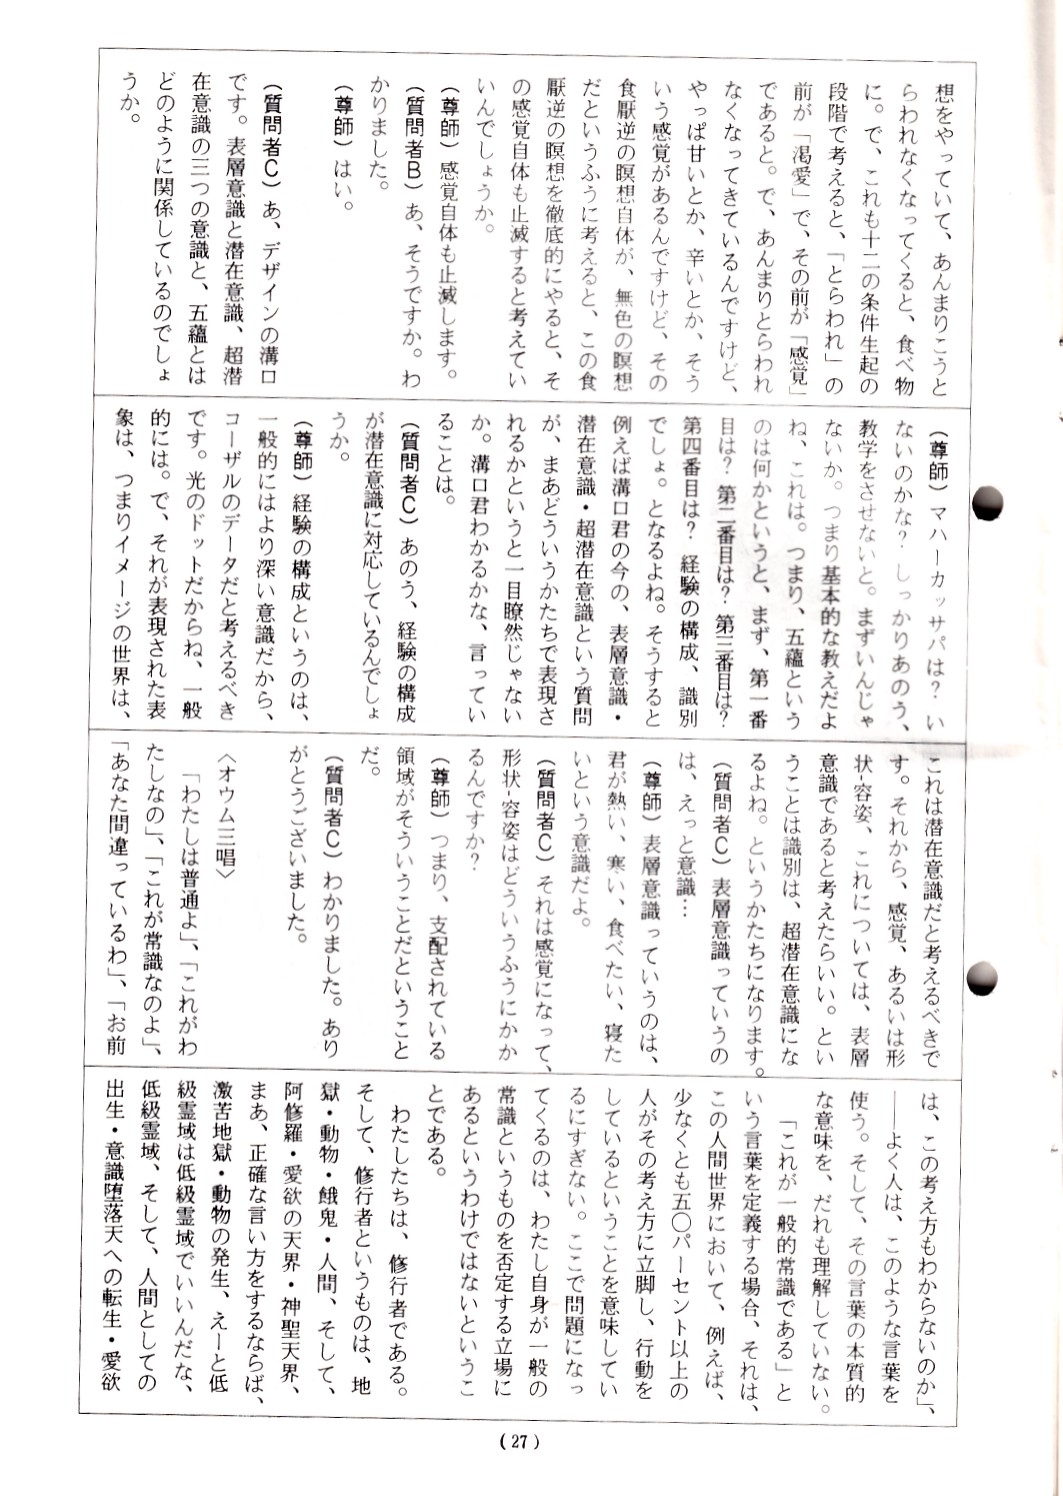 想をやっていて、あんまりこうと
らわれなくなってくると、食べ物
に。で、これも十二の条件生起の
段階で考えると、「とらわれ」の
前が「渇愛」で、その前が「感覚」
であると。で、あんまりとらわれ
なくなってきているんですけど、
やっぱ甘いとか、辛いとか、そう
いう感覚があるんですけど、その
食厭逆の瞑想自体が、無色の瞑想
だというふうに考えると、この食
厭逆の瞑想を徹底的にやると、そ
の感覚自体も止滅すると考えてい
いんでしょうか。
（尊師）感覚自体も止滅します。
（質問者Ｂ）あ、そうですか。わ
かりました。
（尊師）はい。
（質問者Ｃ）あ、デザインの溝口
です。表層意識と潜在意識、超潜
在意識の三つの意識と、五蘊とは
どのように関係しているのでしょ
うか。
（尊師）マハーカッサパは？　い
ないのかな？　しっかりあのう、
教学をさせないと。まずいんじゃ
ないか。つまり基本的な教えだよ
ね、これは。つまり、五蘊という
のは何かというと、まず、第一番
目は？　第二番目は？　第三番目は？
第四番目は？　経験の構成、識別
でしょ。となるよね。そうすると
例えば溝口君の今の、表層意識・
潜在意識・超潜在意識という質問
が、まあどういうかたちで表現さ
れるかというと一目瞭然じゃない
か。溝口君わかるかな、言ってい
ることは。
（質問者Ｃ）あのう、経験の構成
が潜在意識に対応しているんでしょ
うか。
（尊師）経験の構成というのは、
一般的にはより深い意識だから、
コーザルのデータだと考えるべき
です。光のドットだからね、一般
的には。で、それが表現された表
象は、つまりイメージの世界は、
これは潜在意識だと考えるべきで
す。それから、感覚、あるいは形
状‐容姿、これについては、表層
意識であると考えたらいい。とい
うことは識別は、超潜在意識にな
るよね。というかたちになります。
（質問者Ｃ）表層意識っていうの
は、えっと意識…
（尊師）表層意識っていうのは、
君が熱い、寒い、食べたい、寝た
いという意識だよ。
（質問者Ｃ）それは感覚になって、
形状‐容姿はどういうふうにかか
るんですか？
（尊師）つまり、支配されている
領域がそういうことだということ
だ。
（質問者Ｃ）わかりました。あり
がとうございました。
〈オウム三唱〉
「わたしは普通よ」、「これがわ
たしなの」、「これが常識なのよ」、
「あなた間違っているわ」、「お前
は、この考え方もわからないのか」、
――よく人は、このような言葉を
使う。そして、その言葉の本質的
な意味を、だれも理解していない。
「これが一般的常識である」と
いう言葉を定義する場合、それは、
この人間世界において、例えば、
少なくとも五〇パーセント以上の
人がその考え方に立脚し、行動を
しているということを意味してい
るにすぎない。ここで問題になっ
てくるのは、わたし自身が一般の
常識というものを否定する立場に
あるというわけではないというこ
とである。
わたしたちは、修行者である。
そして、修行者というものは、地
獄・動物・餓鬼・人間、そして、
阿修羅・愛欲の天界・神聖天界、
まあ、正確な言い方をするならば、
激苦地獄・動物の発生、えーと低
級霊域は低級霊域でいいんだな、
低級霊域、そして、人間としての
出生・意識堕落天への転生・愛欲
(27)